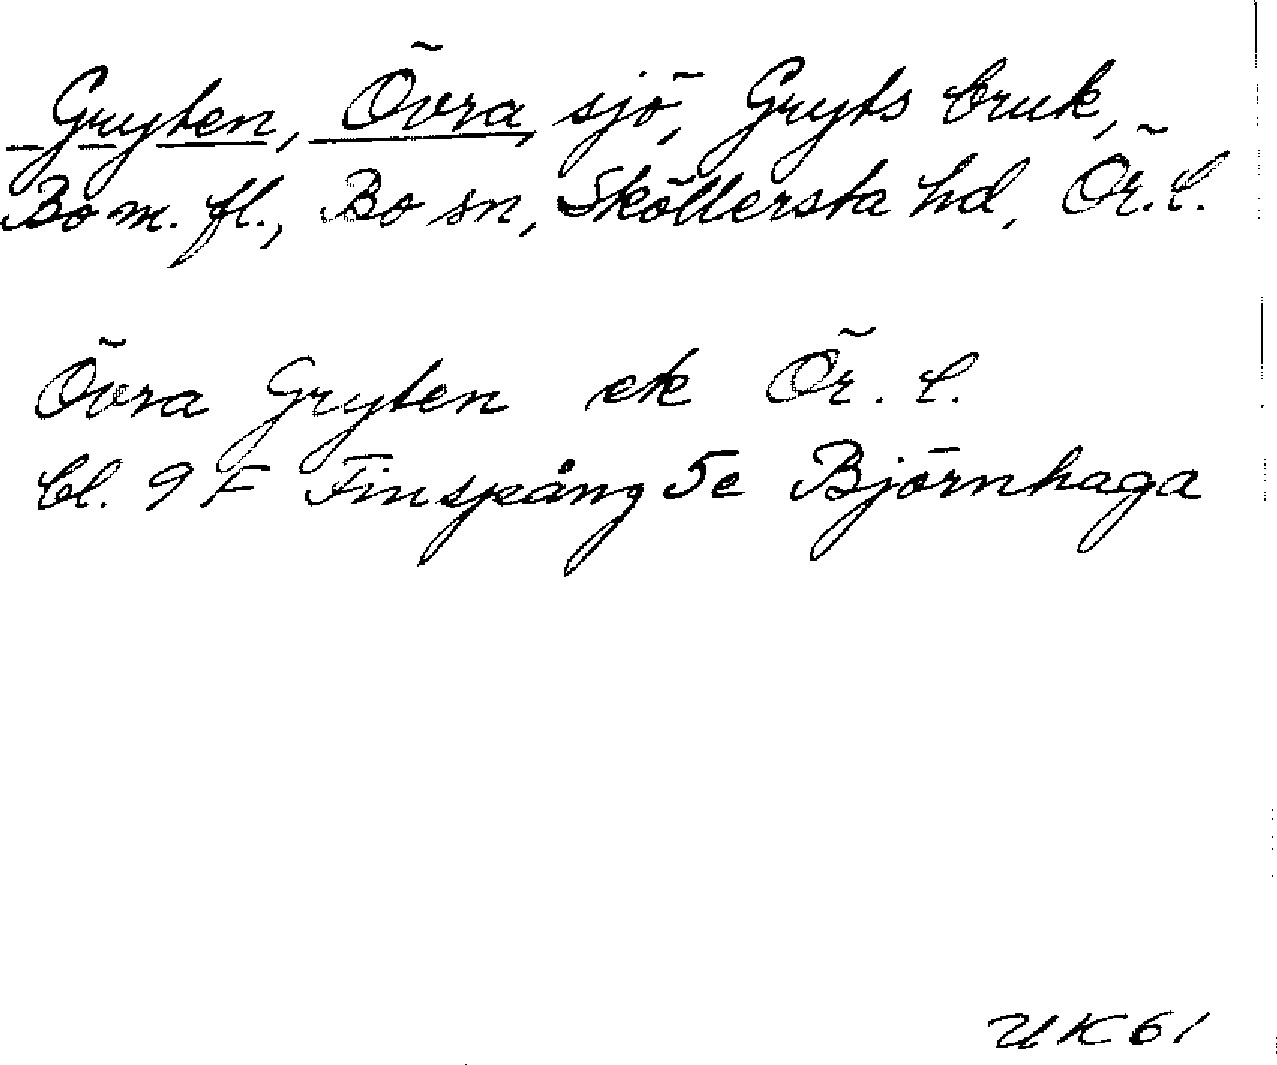 Gryten, Övra, sjö, Gryts bruk,
Bo m. fl., Bo sn, Sköllersta hd, Ör. l.
Övra Gryten ek Ör. l.
bl. 9 F Finspång 5e Björnhaga
UK 61